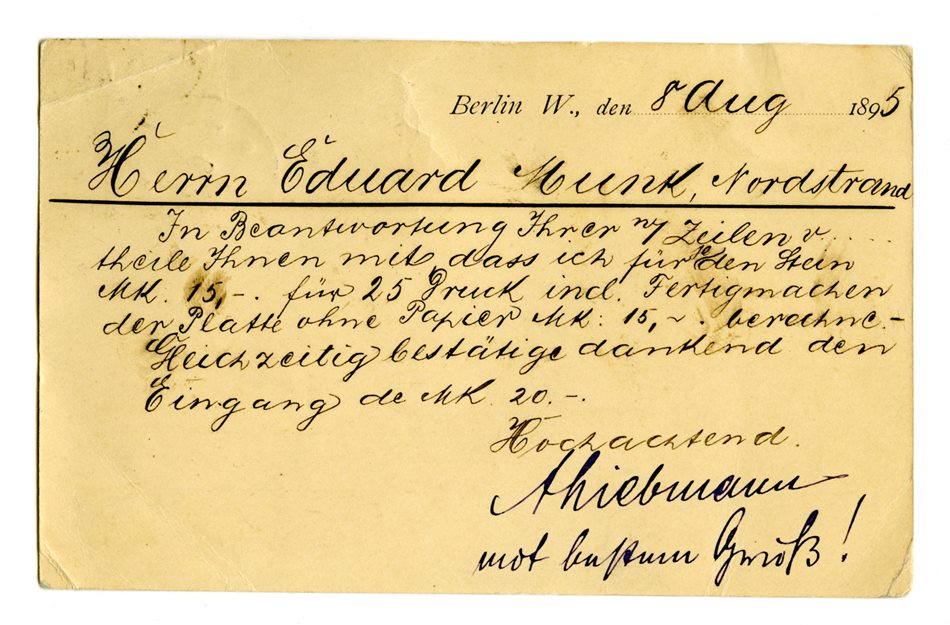 Berlin W., den 8 Aug 1895
Herrn Eduard Munk, Nordstrand
In Beantwortung Ihrer Zeilen v.....
theile Ihnen mit, dass ich für den Stein
MK. 15,-. für 25 Druck incl. Fertigmachen
der Platte ohne Papier MK: 15,-. berechne.-
Gleichzeitig bestätige dankend den
Eingang de MK 20.-.
Hochachtend.
A Liebmann
mit bestem Gruß!